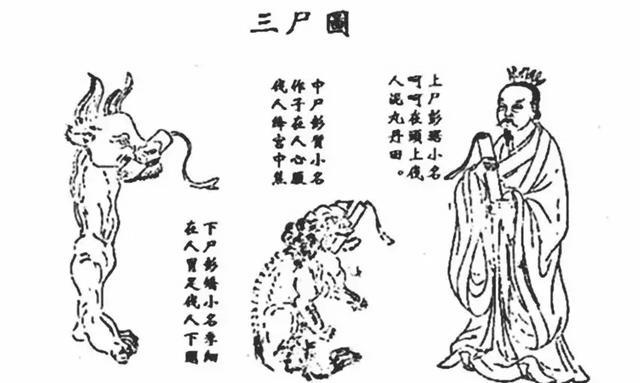 三尸圖
上尸彭琚小名
呵呵在頭上伐
人泥丸丹田。
中尸彭質小名
作子在人心
伐人絳宮中焦
下尸彭矯小名季細
在人胃足伐人下關